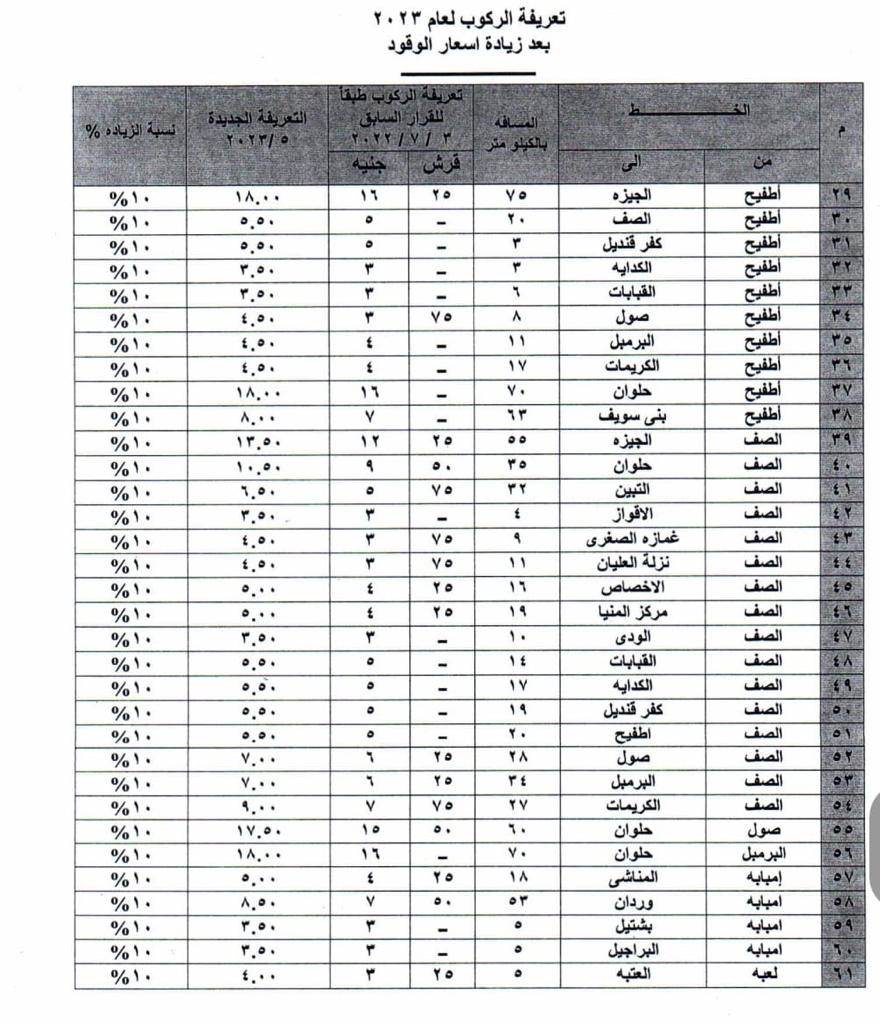 تعريفة الركوب لعام ٢٠٢٣
بعد زيادة اسعار الوقود
م الخــــــط المسافه بالكيلو متر تعريفة الركوب طبقأ للقرار السابق ٣ / ٧ / ٢٠٢٢ التعريفة الجديدة ٢٠٢٣/٥ نسبة الزياده %
من الى قرش جنيه
٢٩ أطفيح الجيزه ٧٥ ٢٥ ١٦ ١٨.٠٠ ١٠%
٣٠ أطفيح الصف ٢٠ – ٥ ٥.٥٠ ١٠%
٣١ أطفيح كفر قنديل ٣ – ٥ ٥.٥٠ ١٠%
٣٢ أطفيح الكدايه ٣ – ٣ ٣.٥٠ ١٠%
٣٣ أطفيح القبابات ٦ – ٣ ٣.٥٠ ١٠%
٣٤ أطفيح صول ٨ ٧٥ ٣ ٤.٥٠ ١٠%
٣٥ أطفيح البرمبل ١١ – ٤ ٤.٥٠ ١٠%
٣٦ أطفيح الكريمات ١٧ – ٤ ٤.٥٠ ١٠%
٣٧ أطفيح حلوان ٧٠ – ١٦ ١٨.٠٠ ١٠%
٣٨ أطفيح بنى سويف ٦٣ – ٧ ٨.٠٠ ١٠%
٣٩ الصف الجيزه ٥٥ ٢٥ ١٢ ١٣.٥٠ ١٠%
٤٠ الصف حلوان ٣٥ ٥٠ ٩ ١٠.٥٠ ١٠%
٤١ الصف التبين ٣٢ ٧٥ ٥ ٦.٥٠ ١٠%
٤٢ الصف الاقواز ٤ – ٣ ٣.٥٠ ١٠%
٤٣ الصف غمازه الصغرى ٩ ٧٥ ٣ ٤.٥٠ ١٠%
٤٤ الصف نزلة العليان ١١ ٧٥ ٣ ٤.٥٠ ١٠%
٤٥ الصف الاخصاص ١٦ ٢٥ ٤ ٥.٠٠ ١٠%
٤٦ الصف مركز المنيا ١٩ ٢٥ ٤ ٥.٠٠ ١٠%
٤٧ الصف الودى ١٠ – ٣ ٣.٥٠ ١٠%
٤٨ الصف القبابات ١٤ – ٥ ٥.٥٠ ١٠%
٤٩ الصف الكدايه ١٧ – ٥ ٥.٥٠ ١٠%
٥٠ الصف كفر قنديل ١٩ – ٥ ٥.٥٠ ١٠%
٥١ الصف اطفيح ٢٠ – ٥ ٥.٥٠ ١٠%
٥٢ الصف صول ٢٨ ٢٥ ٦ ٧.٠٠ ١٠%
٥٣ الصف البرمبل ٣٤ ٢٥ ٦ ٧.٠٠ ١٠%
٥٤ الصف الكريمات ٢٧ ٧٥ ٧ ٩.٠٠ ١٠%
٥٥ صول حلوان ٦٠ ٥٠ ١٥ ١٧.٥٠ ١٠%
٥٦ البرمبل حلوان ٧٠ – ١٦ ١٨.٠٠ ١٠%
٥٧ إمبابه المناشى ١٨ ٢٥ ٤ ٥.٠٠ ١٠%
٥٨ امبابه وردان ٥٣ ٥٠ ٧ ٨.٥٠ ١٠%
٥٩ امبابه بشتيل ٥ – ٣ ٣.٥٠ ١٠%
٦٠ امبابه البراجيل ٥ – ٣ ٣.٥٠ ١٠%
٦١ لعبه العتبه ٥ ٢٥ ٣ ٤.٠٠ ١٠%